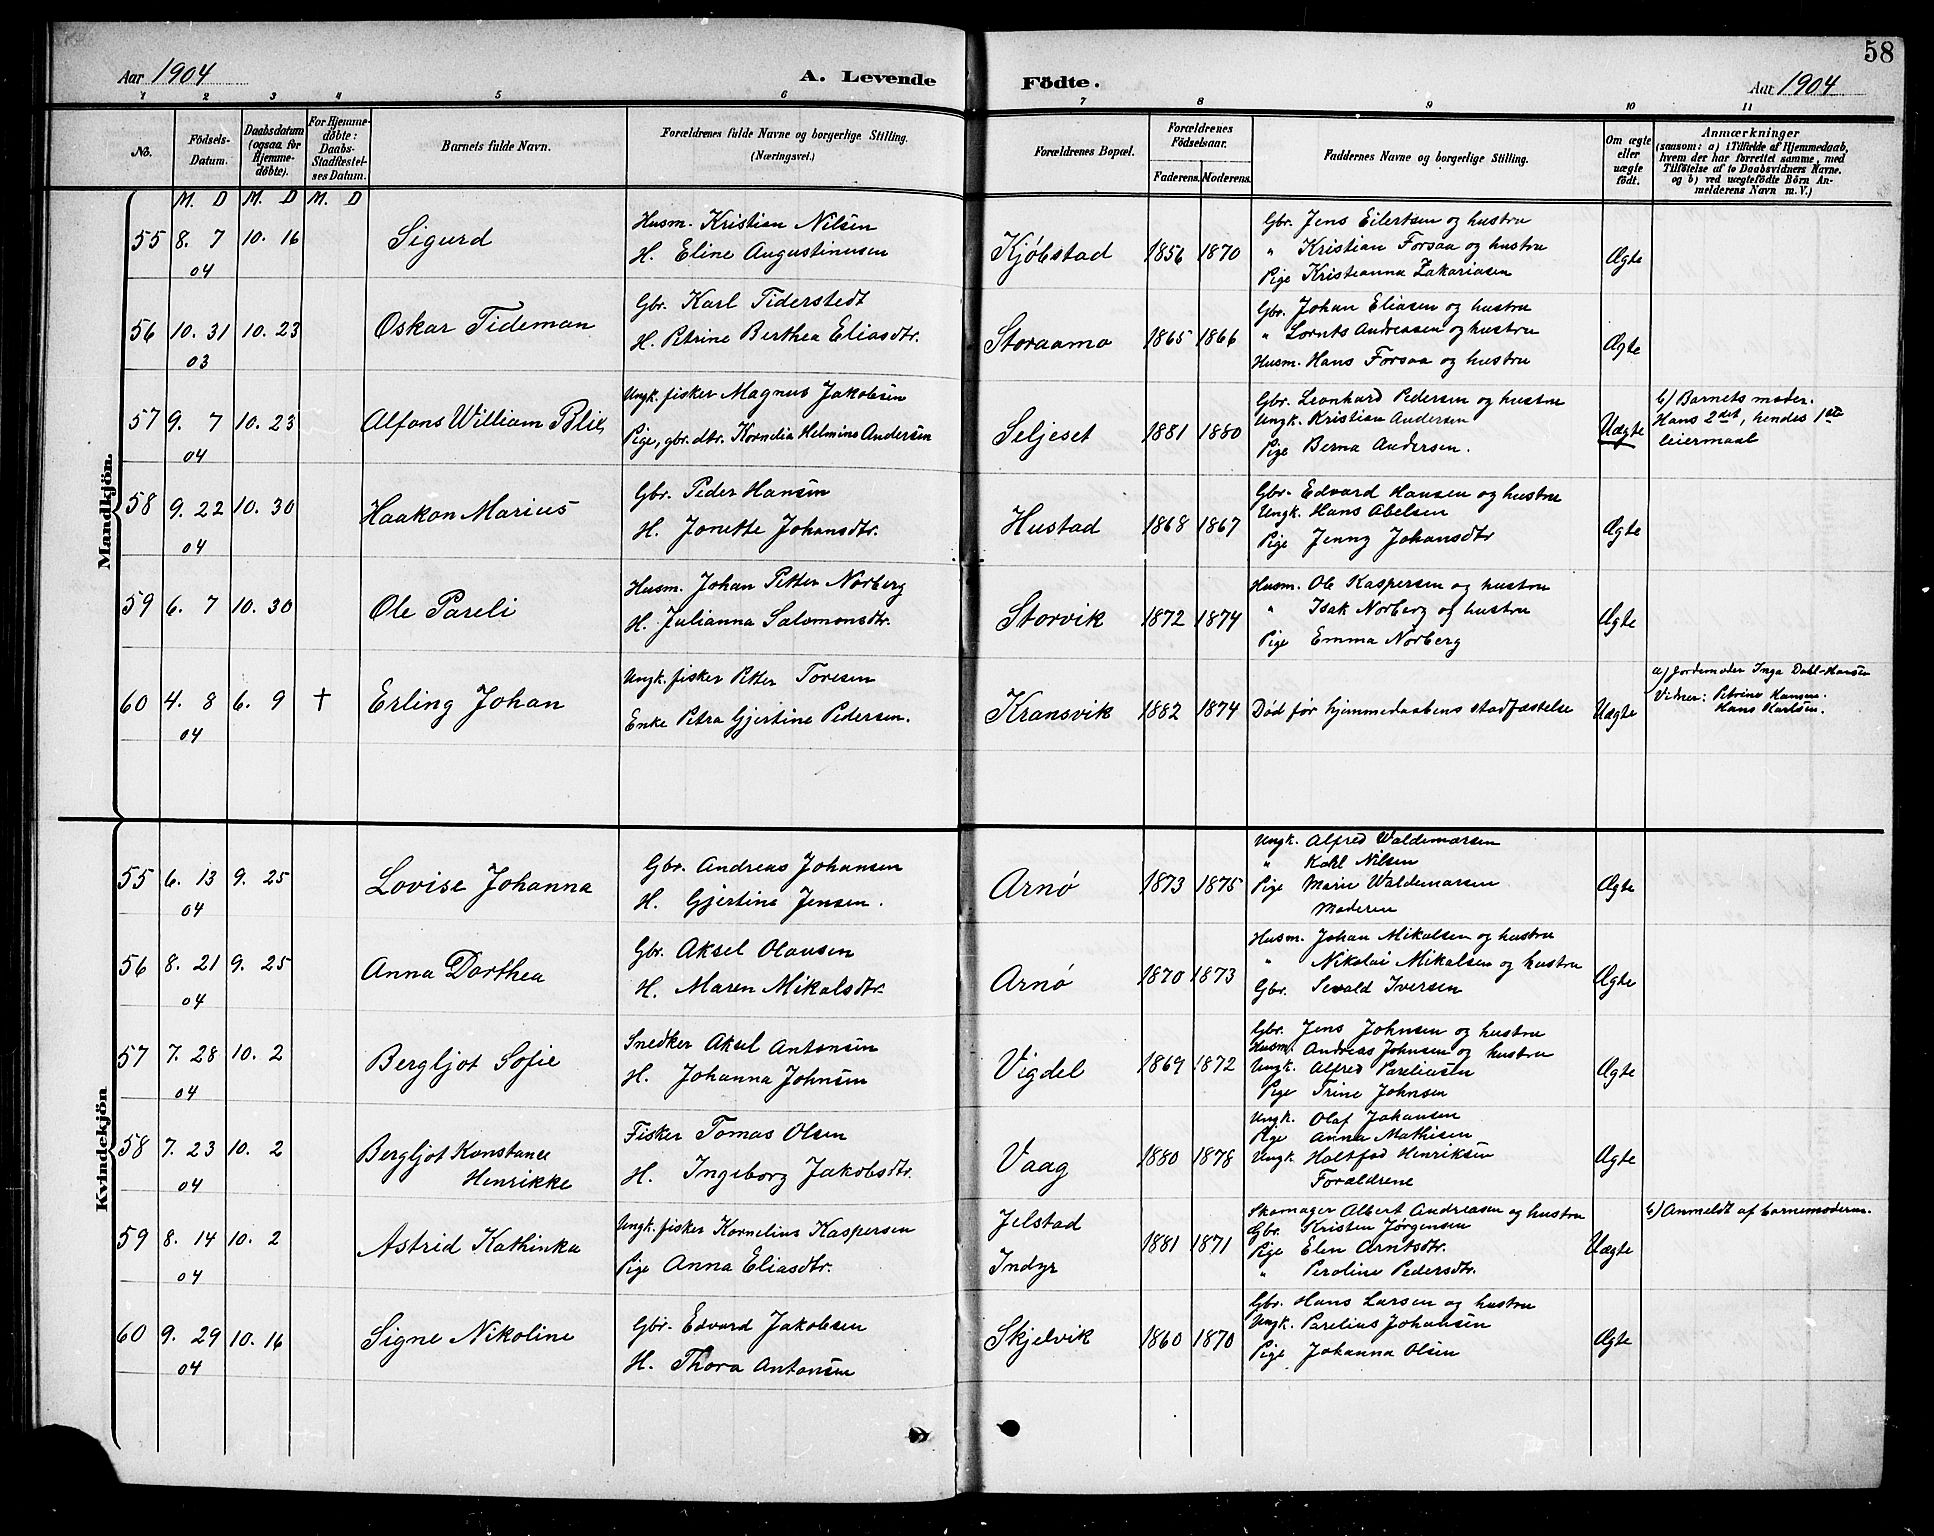 58
Aar 1904
A. Levende Födte.
Aar 1904
1 2 3 4 5 6 7 8 9 10 11
No.
Födsels-
Datum.
Daabsdatum
(ogsaa for
Hjemme-
döbte).
For Hjemme-
døbte:
Daabs-
Stadfæstel-
ses Datum.
Barnets fulde Navn.
Forældrenes fulde Navne og borgerlige Stilling.
(Næringsvei.)
Forældrenes Bopæl.
Forældrenes
Födselsaar.
Faderens. Moderens.
Faddernes Navne og borgerlige Stilling.
Om ægte
eller
uægte
födt.
Anmærkninger
(saasom: a) i Tilfælde af Hjemmedaab,
hvem der har forrettet samme, med
Tilföielse af to Daabsvidners Navne.
og b) ved uægtefödte Börn An-
melderens Navn m. V.)
M. D M. D M. D
Mandkjön.
55 8. 7 04 10. 16 Sigurd
Husm. Kristian Nilsen
H. Eline Augustinusen
Kjøbstad 1856 1870
Gbr. Jens Eilertsen og hustru
" Kristian Forsaa og hustru
Pige Kristianna Zakariasen
Ægte
56 10. 31 03 10. 23 Oskar Tideman
Gbr. Karl Tiderstedt
H. Petrine Berthea Eliasdtr.
Storaamo 1865 1866
Gbr. Johan Eliasen og hustru
" Lornts Andreasen og hustru
Husm. Hans Forsaa og hustru
Ægte
57 9. 7 04 10. 23 Alfons William Blix
Ungk. fisker Magnus Jakobsen
Pige, gbr. dtr. Kornelia Helmine Andersen
Seljeset 1881 1880
Gbr. Leonhard Pedersen og hustru
Ungk. Kristian Andersen
Pige Berna Andersen.
Uægte
b) Barnets moder.
Hans 2det, hendes 1ste
leiermaal
58 9. 22 04 10. 30 Haakon Marius
Gbr. Peder Hansen
H. Jonette Johansdtr.
Hustad 1868 1867
Gbr. Edvard Hansen og hustru
Ungk. Hans Abelsen
Pige Jenny Johansdtr
Ægte
59 6. 7 10. 30 Ole Pareli
Husm. Johan Petter Norberg
H. Julianna Salomonsdtr.
Storvik 1872 1874
Husm. Ole Kaspersen og hustru
" Isak Norberg og hustru
Pige Emma Norberg
Ægte
60 4. 8 04 6. 9 † Erling Johan
Ungk. fisker Petter Toresen
Enke Petra Gjertine Pedersen.
Kransvik 1882 1874
Død før hjemmedaabens stadfæstelse
Uægte
a) Jordemoder Inga Dahl-Hansen
Vidner: Petrine Hansen.
Hans Karlsen.
Kvindekjön
55 6. 13 04 9. 25 Lovise Johanna
Gbr. Andreas Johansen
H. Gjertine Jensen.
Arnø 1873 1875
Ungk. Alfred Waldemarsen
" Karl Nilsen
Pige Marie Waldemarsen
Moderen
Ægte
56 8. 21 04 9. 25 Anna Dorthea
Gbr. Aksel Olausen
H. Maren Mikalsdtr.
Arnø 1870 1873
Husm. Johan Mikalsen og hustru
" Nikolai Mikalsen og hustru
Gbr. Sevald Iversen
Ægte
57 7. 28 04 10. 2 Bergljot Sofie
Snedker Aksel Antonsen
H. Johanna Johnsen
Vigdel 1869 1872
Gbr. Jens Johnsen og hustru
Husm. Andreas Johnsen og hustru
Ungk. Alfred Pareliusen
Pige Trine Johnsen
Ægte
58 7. 23 04 10. 2 Bergljot Konstance
Henrikke
Fisker Tomas Olsen
H. Ingeborg Jakobsdtr.
Vaag 1880 1878
Ungk. Olaf Johansen
Pige Anna Mathisen
Ungk. Haltfod Henriksen
Forældrene
Ægte
59 8. 14 04 10. 2 Astrid Kathinka
Ungk. fisker Kornelius Kaspersen
Pige Anna Eliasdtr.
Jelstad
Indyr
1881 1871
Skomager Albert Andreasen og hustru
Gbr. Kristen Jørgensen
Pige Elen Arntsdtr.
" Peroline Pedersdtr.
Uægte
b) Anmeldt af barnemoderen.
60 9. 29 04 10. 16 Signe Nikoline
Gbr. Edvard Jakobsen
H. Thora Antonsen
Skjelvik 1860 1870
Gbr. Hans Larsen og hustru
Ungk. Parelius Johansen
Pige Johanna Olsen
Ægte